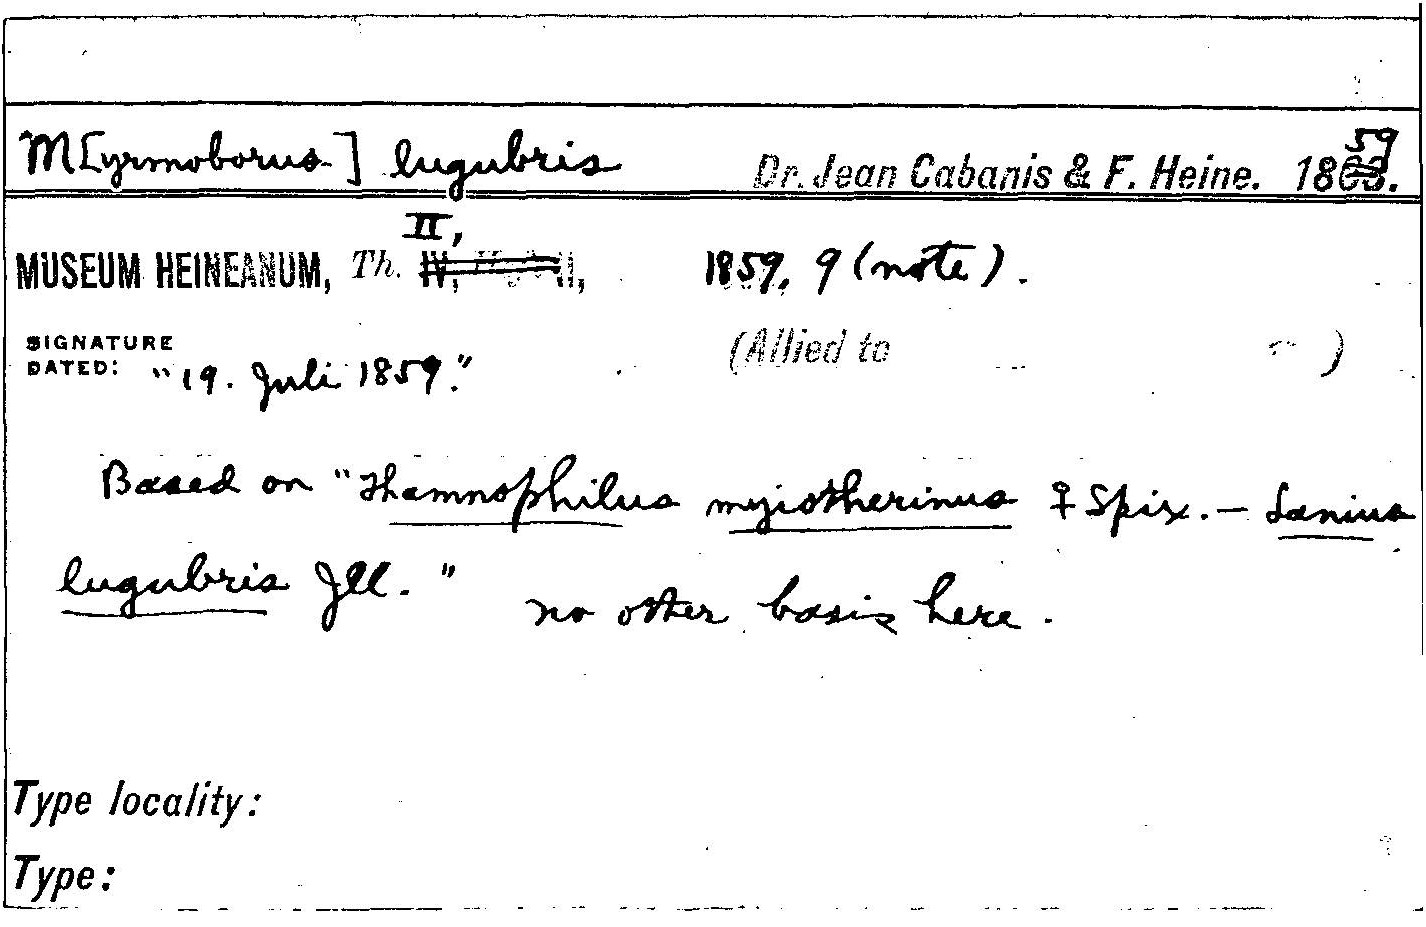 M[yrmoborus] lugubris Dr. Jean Cabanis & F. Heine. 1859.
II,
MUSEUM HEINEANUM, Th. 1859, 9 (note).
SIGNATURE
DATED: "19. Juli 1859." (Allied to )
Based on "Thamnophilus myiotherinus ♀ Spix. — Lanius
lugubris Ill." no other basis here.
Type locality:
Type: